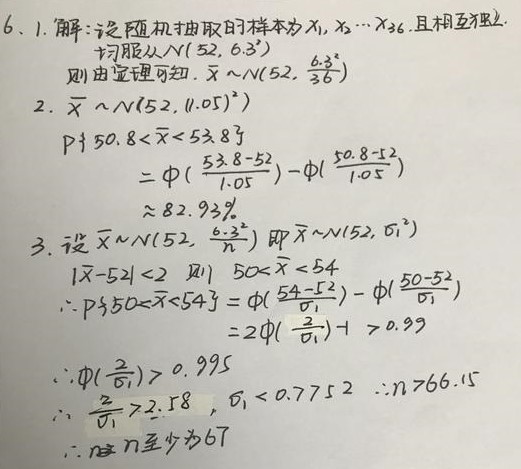 6、1. 解:设随机抽取的样本为 x₁, x₂ … x₃₆. 且相互独立.
均服从 N(52, 6.3²)
则由定理可知. x̄ ~ N(52, 6.3²/36)
2. x̄ ~ N(52, (1.05)²)
P{50.8 < x̄ < 53.8}
= Φ((53.8-52)/1.05) - Φ((50.8-52)/1.05)
≈ 82.93%
3. 设 x̄ ~ N(52, 6.3²/n) 即 x̄ ~ N(52, σ₁²)
|x̄-52| < 2 则 50 < x̄ < 54
∴ P{50 < x̄ < 54} = Φ((54-52)/σ₁) - Φ((50-52)/σ₁)
= 2Φ(2/σ₁) - 1 > 0.99
∴ Φ(2/σ₁) > 0.995
∴ 2/σ₁ > 2.58 , σ₁ < 0.7752 ∴ n > 66.15
∴ n至少为67